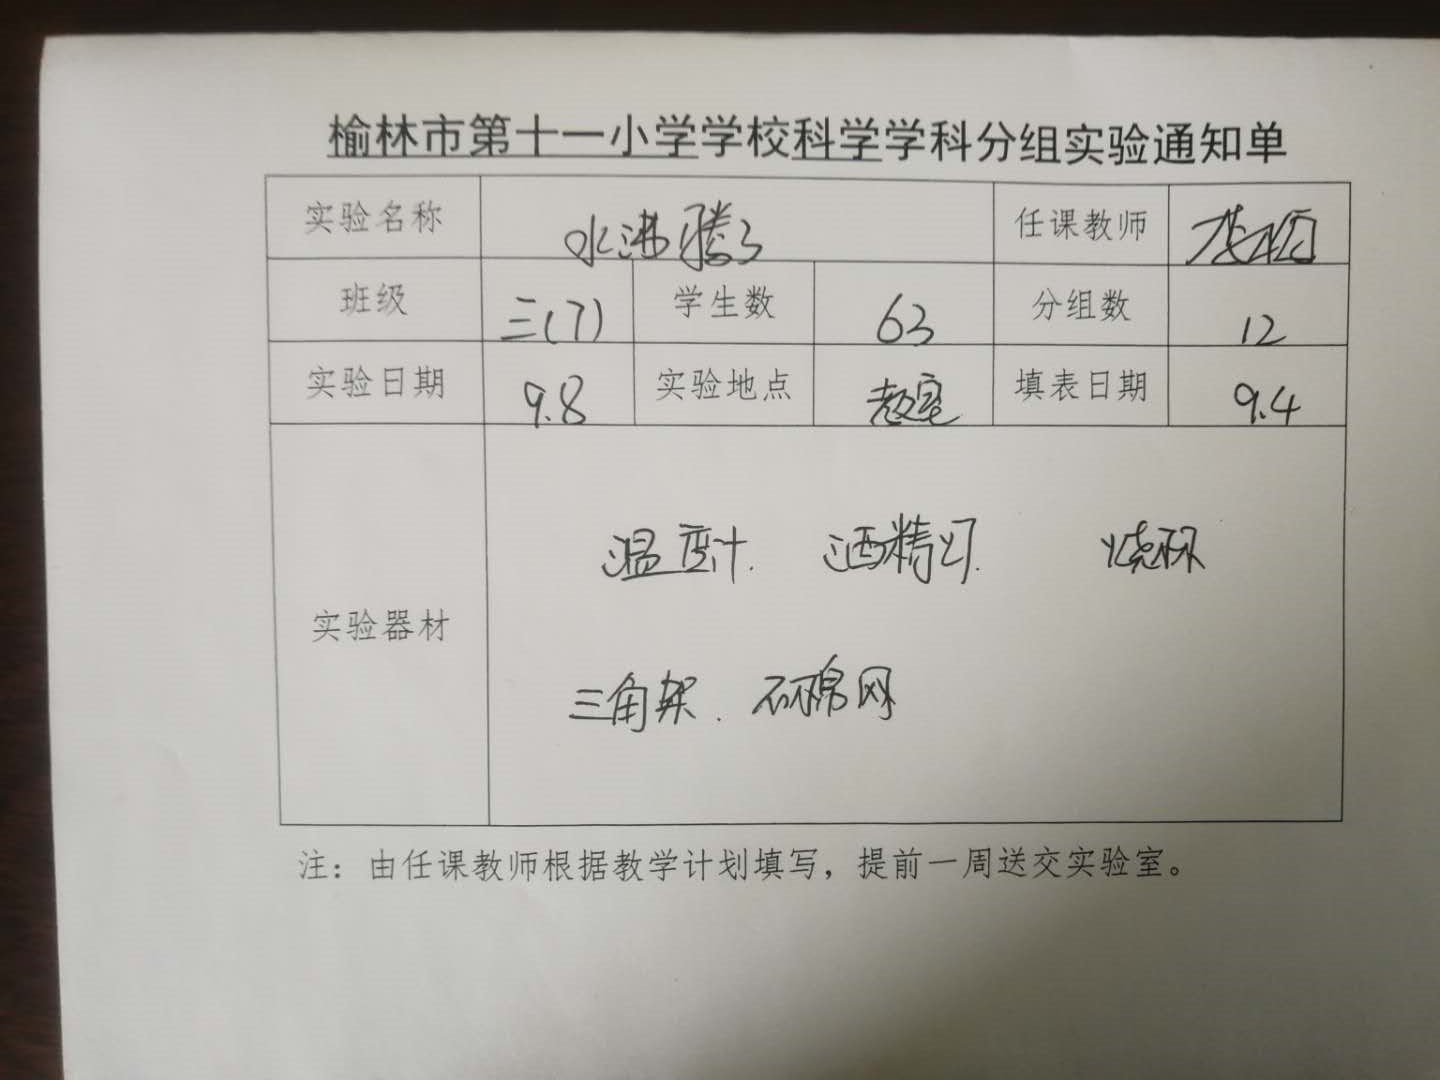 榆林市第十一小学学校科学学科分组实验通知单
实验名称 水沸腾了 任课教师
班级 三(7) 学生数 63 分组数 12
实验日期 9.8 实验地点 教室 填表日期 9.4
温度计. 酒精灯. 烧杯
实验器材
三角架. 石棉网
注：由任课教师根据教学计划填写，提前一周送交实验室。